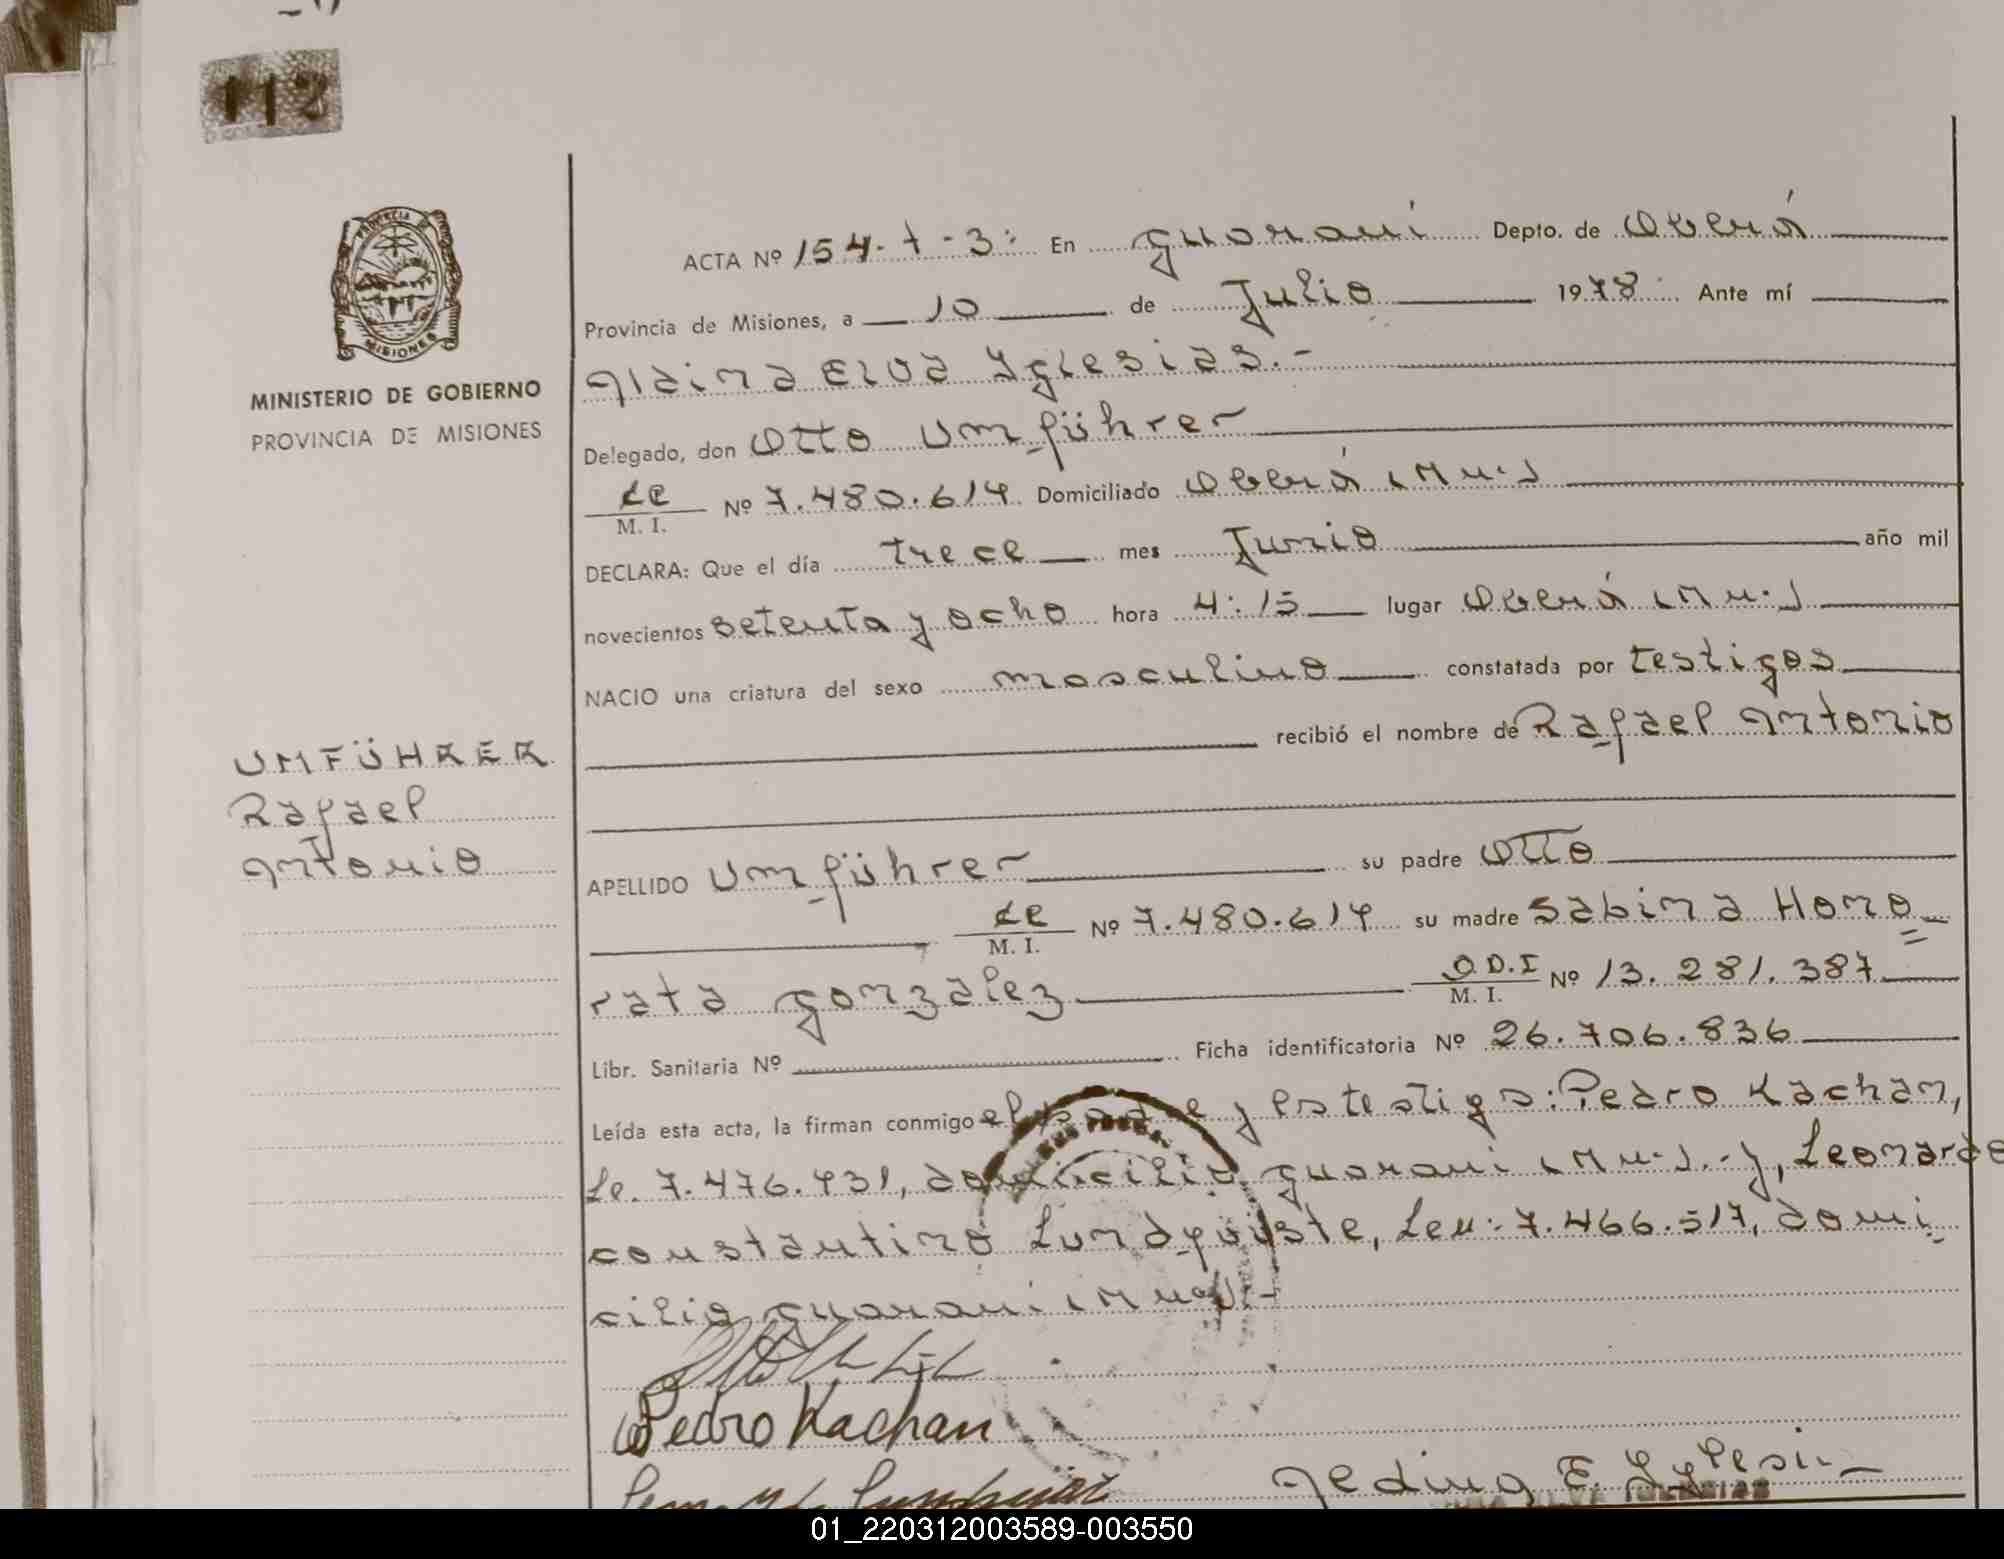 112
PROVINCIA DE
MISIONES
MINISTERIO DE GOBIERNO
PROVINCIA DE MISIONES
ACTA Nº 154-t-3: En Guarani Depto. de Oberá
Provincia de Misiones, a 10 de Julio 1978 Ante mí
Elva Yglesias.-
Delegado, don Otto Umführer
LE
M. I. Nº 7.480.614 Domiciliado Oberá (Mnes.)
DECLARA: Que el día trece mes Junio año mil
novecientos setenta y ocho hora 4:15 lugar Oberá (Mnes.)
NACIO una criatura del sexo masculino constatada por testigos
recibió el nombre de Rafael Antonio
UMFÜHRER
Rafael
Antonio
APELLIDO Umführer su padre Otto
LE
M. I. Nº 7.480.614 su madre Sabina Hono=
rata Gonzalez D.I
M. I. Nº 13.281.387
Libr. Sanitaria Nº Ficha identificatoria Nº 26.706.836
Leída esta acta, la firman conmigo el padre y los testigos: Pedro Kachan,
Le. 7.476.431, domicilio Guarani (Mnes.).- y, Leonardo
Constantino Lundqüiste, Le Nº 7.466.517, domi
cilio Guarani (Mnes).-
Pedro Kachan
E. Yglesias
01_220312003589-003550